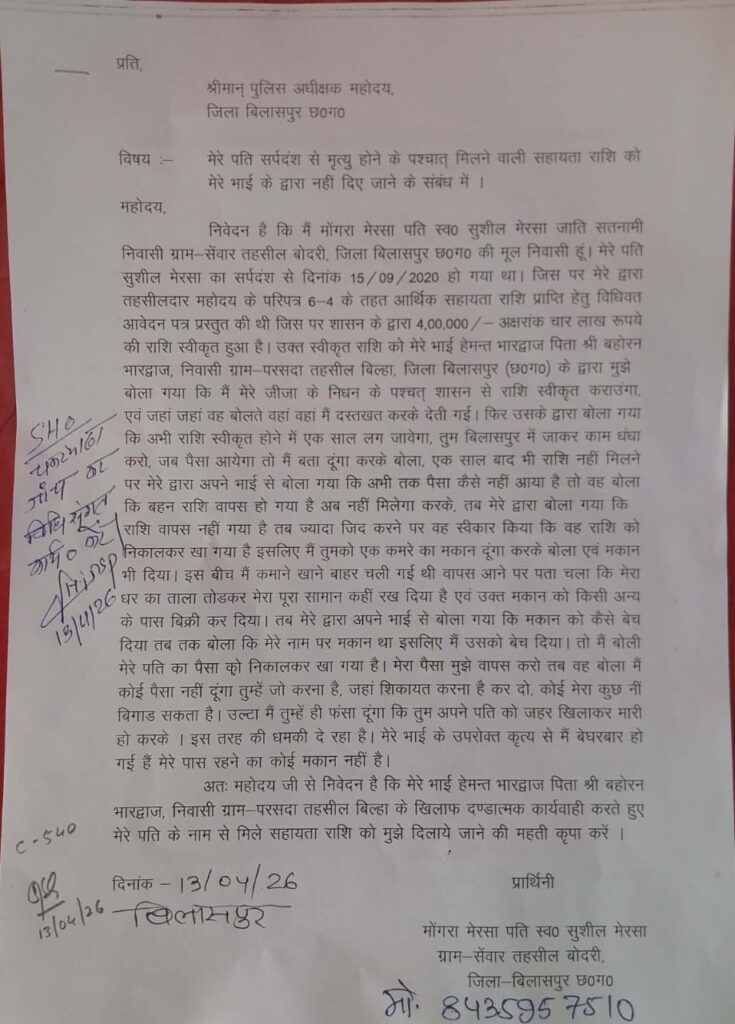 प्रति,
श्रीमान् पुलिस अधीक्षक महोदय,
जिला बिलासपुर छ0ग0
विषय :– मेरे पति सर्पदंश से मृत्यु होने के पश्चात् मिलने वाली सहायता राशि को
मेरे भाई के द्वारा नहीं दिए जाने के संबंध में ।
महोदय,
निवेदन है कि मैं मोंगरा मेरसा पति स्व0 सुशील मेरसा जाति सतनामी
निवासी ग्राम–सेंवार तहसील बोदरी, जिला बिलासपुर छ0ग0 की मूल निवासी हूं। मेरे पति
सुशील मेरसा का सर्पदंश से दिनांक 15/09/2020 हो गया था। जिस पर मेरे द्वारा
तहसीलदार महोदय के परिपत्र 6–4 के तहत आर्थिक सहायता राशि प्राप्ति हेतु विधिवत
आवेदन पत्र प्रस्तुत की थी जिस पर शासन के द्वारा 4,00,000/– अक्षरांक चार लाख रूपये
की राशि स्वीकृत हुआ है। उक्त स्वीकृत राशि को मेरे भाई हेमन्त भारद्वाज पिता श्री बहोरन
भारद्वाज, निवासी ग्राम–परसदा तहसील बिल्हा, जिला बिलासपुर (छ0ग0) के द्वारा मुझे
बोला गया कि मैं मेरे जीजा के निधन के पश्चत् शासन से राशि स्वीकृत कराउंगा,
एवं जहां जहां वह बोलते वहां वहां में दस्तखत करके देती गई। फिर उसके द्वारा बोला गया
कि अभी राशि स्वीकृत होने में एक साल लग जावेगा, तुम बिलासपुर में जाकर काम धंधा
करो, जब पैसा आयेगा तो मैं बता दूंगा करके बोला, एक साल बाद भी राशि नहीं मिलने
पर मेरे द्वारा अपने भाई से बोला गया कि अभी तक पैसा कैसे नहीं आया है तो वह बोला
कि बहन राशि वापस हो गया है अब नहीं मिलेगा करके, तब मेरे द्वारा बोला गया कि
राशि वापस नहीं गया है तब ज्यादा जिद करने पर वह स्वीकार किया कि वह राशि को
निकालकर खा गया है इसलिए मैं तुमको एक कमरे का मकान दूंगा करके बोला एवं मकान
भी दिया। इस बीच मैं कमाने खाने बाहर चली गई थी वापस आने पर पता चला कि मेरा
घर का ताला तोडकर मेरा पूरा सामान कहीं रख दिया है एवं उक्त मकान को किसी अन्य
के पास बिक्री कर दिया। तब मेरे द्वारा अपने भाई से बोला गया कि मकान को कैसे बेच
दिया तब तक बोला कि मेरे नाम पर मकान था इसलिए मैं उसको बेच दिया। तो मैं बोली
मेरे पति का पैसा को निकालकर खा गया है। मेरा पैसा मुझे वापस करो तब वह बोला मैं
कोई पैसा नहीं दूंगा तुम्हें जो करना है, जहां शिकायत करना है कर दो, कोई मेरा कुछ नीं
बिगाड सकता है। उल्टा मैं तुम्हें ही फंसा दूंगा कि तुम अपने पति को जहर खिलाकर मारी
हो करके । इस तरह की धमकी दे रहा है। मेरे भाई के उपरोक्त कृत्य से मैं बेघरबार हो
गई हैं मेरे पास रहने का कोई मकान नहीं है।
अतः महोदय जी से निवेदन है कि मेरे भाई हेमन्त भारद्वाज पिता श्री बहोरन
भारद्वाज, निवासी ग्राम–परसदा तहसील बिल्हा के खिलाफ दण्डात्मक कार्यवाही करते हुए
मेरे पति के नाम से मिले सहायता राशि को मुझे दिलाये जाने की महती कृपा करें ।
SHO
चकरभाठा
जांच कर
विधि संगत
कार्य0 करें
13/4/26
C-540
13/04/26
दिनांक - 13/04/26
बिलासपुर
प्रार्थिनी
मोंगरा मेरसा पति स्व0 सुशील मेरसा
ग्राम–सेंवार तहसील बोदरी,
जिला–बिलासपुर छ0ग0
मो. 8435957510